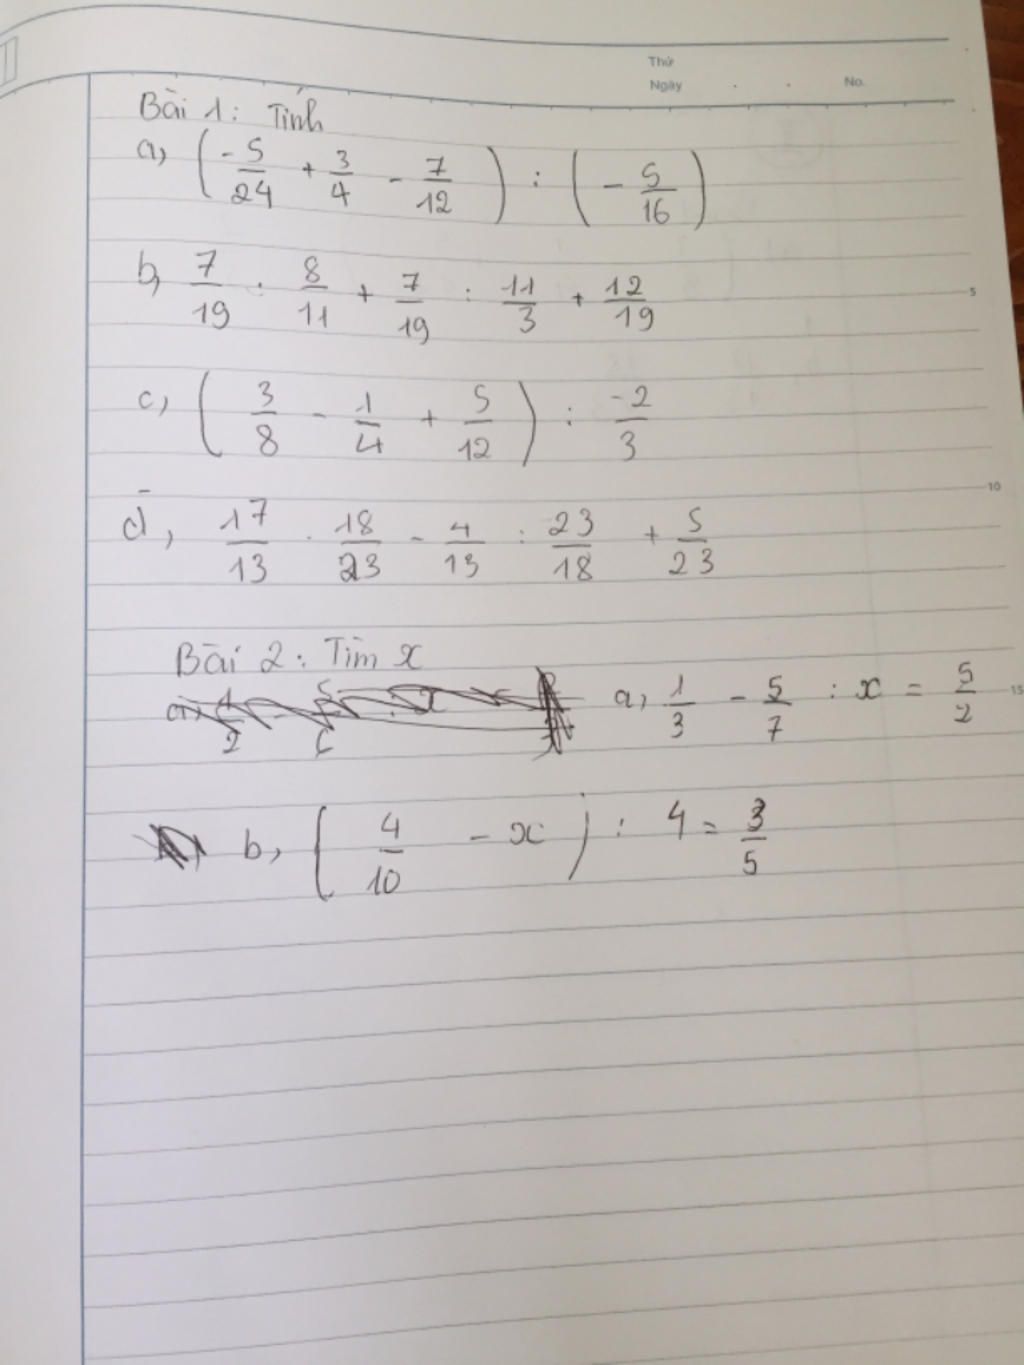 Thứ
Ngày . . No.
Bài 1: Tính
a, (-5/24 + 3/4 - 7/12) : (-5/16)
b, 7/19 . 8/11 + 7/19 : 11/3 + 12/19
5
c, (3/8 - 1/4 + 5/12) : -2/3
10
d, 17/13 . 18/23 - 4/13 : 23/18 + 5/23
Bài 2: Tìm x
a, 1/3 - 5/7 : x = 5/2
15
b, (4/10 - x) : 4 = 3/5